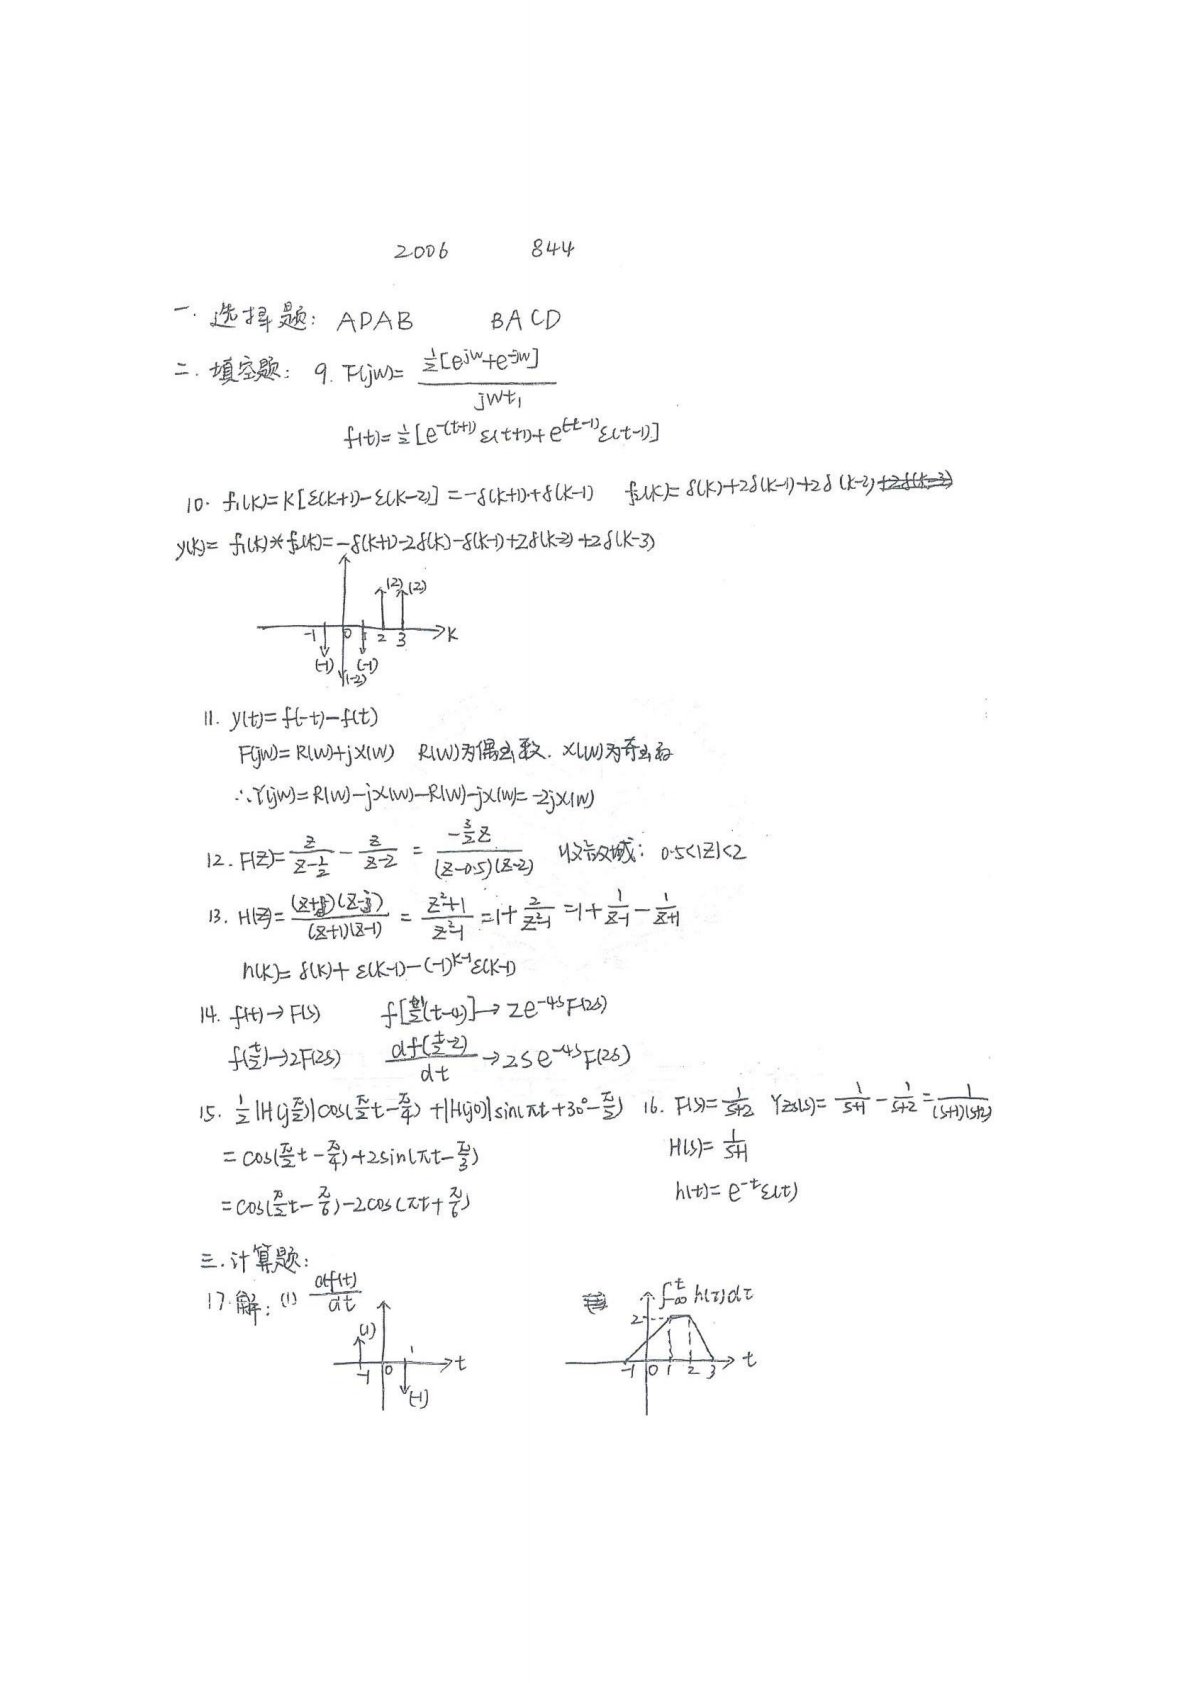 2006 844
一. 选择题: ADAB BACD
二. 填空题: 9. F(jw)= ½[e^jw+e^-jw] / jw+1
f(t)=½[e^-(t+1)ε(t+1)+e^(-t-1)ε(t-1)]
10. f₁(k)=k[ε(k+1)-ε(k-2)]=-δ(k+1)+δ(k-1) f₂(k)=δ(k)+2δ(k-1)+2δ(k-2)
y(k)= f₁(k)*f₂(k)=-δ(k+1)-2δ(k)-δ(k-1)+2δ(k-2)+2δ(k-3)
(2) (2)
-1 0 1 2 3 k
(-1) (-1)
(-2)
11. y(t)=f(-t)-f(t)
F(jw)=R(w)+jX(w) R(w)为偶函数. X(w)为奇函数
∴Y(jw)=R(w)-jX(w)-R(w)-jX(w)=-2jX(w)
12. F(z)= z/(z-½) - z/(z-2) = -3/2 z / (z-0.5)(z-2) 收敛域: 0.5<|z|<2
13. H(z)= (z+j)(z-j) / (z+1)(z-1) = z²+1 / z²-1 =1+ 2/(z²-1) =1+ 1/(z-1) - 1/(z+1)
h(k)= δ(k)+ε(k-1)-(-1)^k-1 ε(k-1)
14. f(t)→F(s) f[½(t-4)]→2e^-4s F(2s)
f(t/2)→2F(2s) df(t/2-2)/dt →2se^-4s F(2s)
15. ½|H(jπ/2)|cos(π/2 t-π/4)+|H(jπ)|sin(πt+30°-π/2) 16. F(s)= 1/(s+2) Yzs(s)= 1/(s+1) - 1/(s+2) = 1/(s+1)(s+2)
=cos(π/2 t-π/4)+2sin(πt-π/3) H(s)= 1/(s+1)
=cos(π/2 t-π/6)-2cos(πt+π/6) h(t)=e^-t ε(t)
三. 计算题:
17. 解: (1) df(t)/dt ∫_-∞^t h(τ)dτ
(1) 2
-1 0 1 t -1 0 1 2 3 t
(-1)